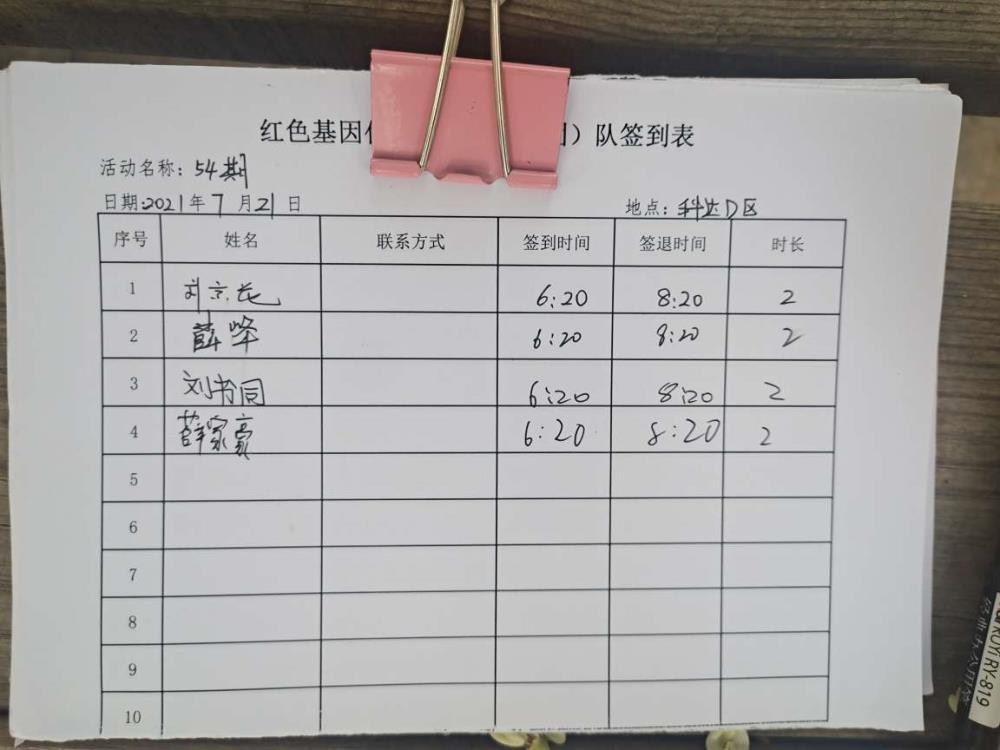 红色基因 队签到表
活动名称：54期
日期：2021年7月21日 地点：科达D区
序号 姓名 联系方式 签到时间 签退时间 时长
1 刘京龙 6:20 8:20 2
2 薛峰 6:20 8:20 2
3 刘书同 6:20 8:20 2
4 薛家豪 6:20 8:20 2
5
6
7
8
9
10
RY-819